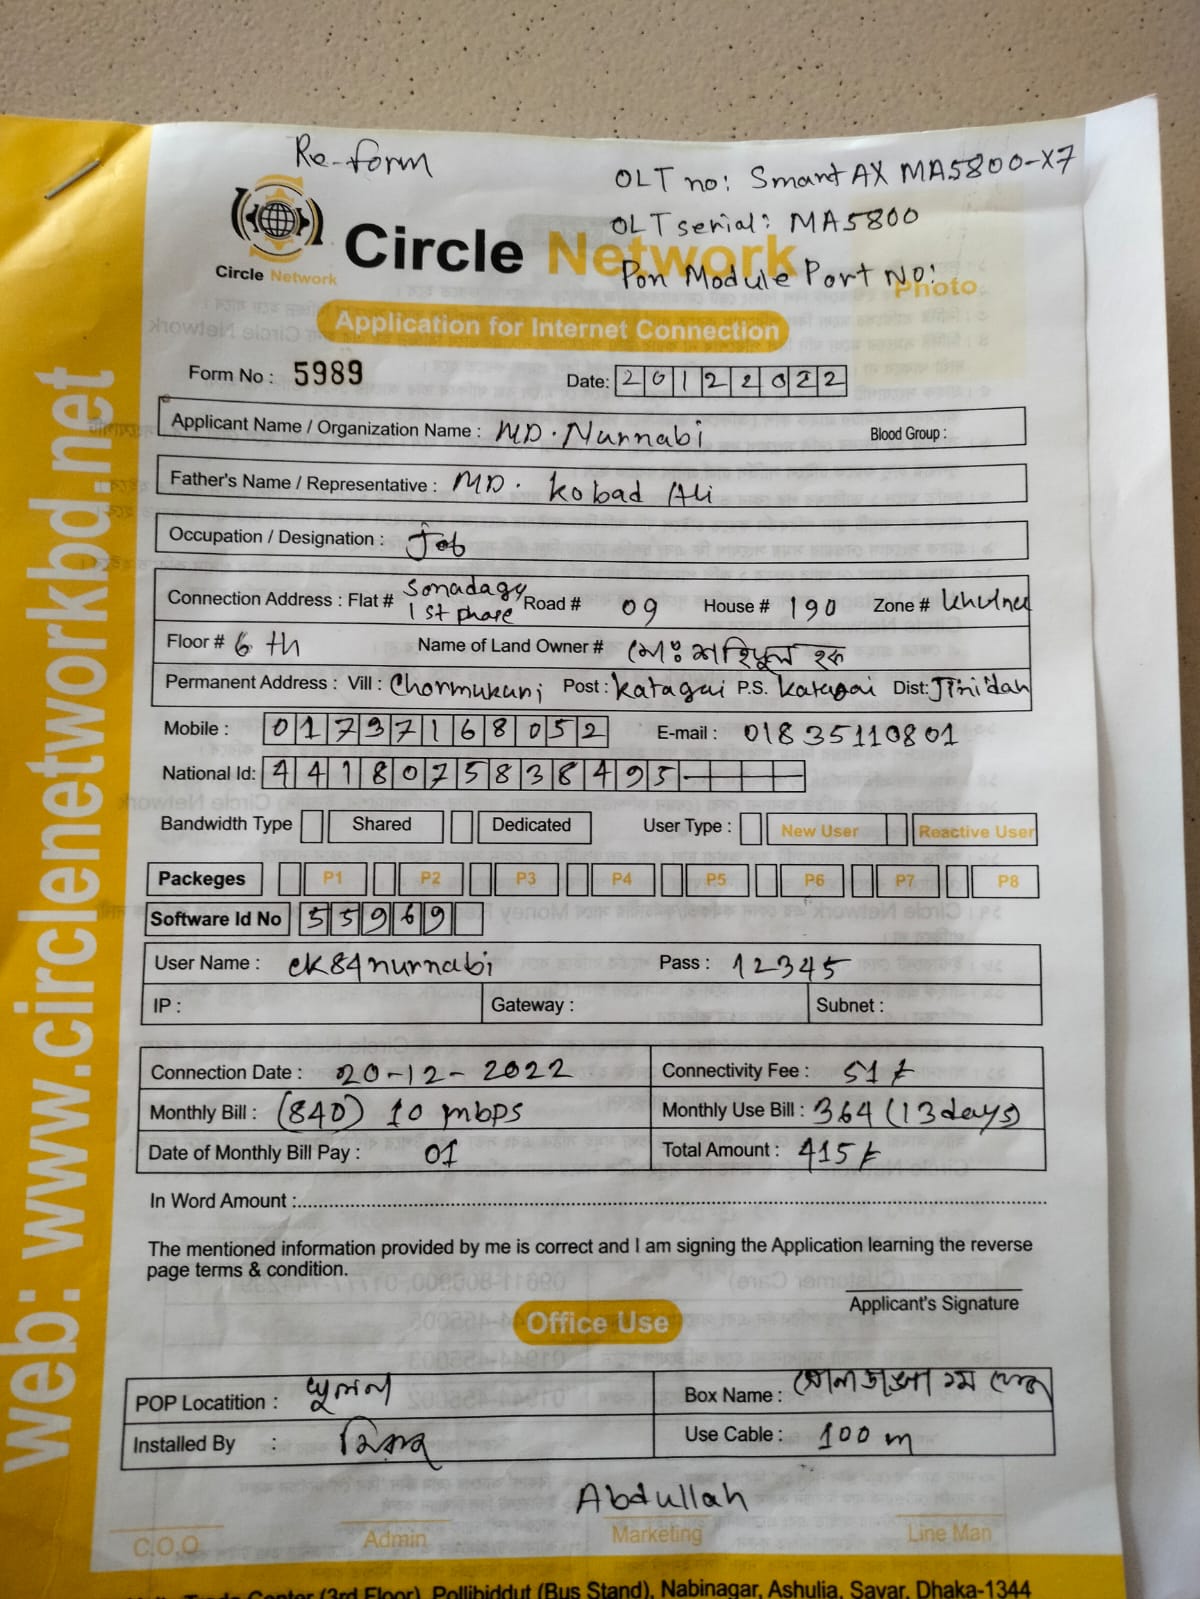 Re-form
OLT no: SmartAX MA5800-X7
OLT serial: MA5800
Pon Module Port NO:
Circle Network
Circle Network
Photo
Application for Internet Connection
Form No : 5989
Date: 20122022
Applicant Name / Organization Name : MD. Nurnabi Blood Group :
Father's Name / Representative : MD. Kobad Ali
Occupation / Designation : Job
Connection Address : Flat # Sonadagy 1st phare Road # 09 House # 190 Zone # Khulnea
Floor # 6 th Name of Land Owner # মোঃ শহিদুল হক
Permanent Address : Vill : Chormukuni Post : Katagai P.S. Katagai Dist: Jinidah
Mobile : 01737168052 E-mail : 01835110801
National Id: 4418075838495
Bandwidth Type Shared Dedicated User Type : New User Reactive User
Packeges P1 P2 P3 P4 P5 P6 P7 P8
Software Id No 55969
User Name : ck84nurnabi Pass : 12345
IP : Gateway : Subnet :
Connection Date : 20-12-2022 Connectivity Fee : 51
Monthly Bill : (840) 10 mbps Monthly Use Bill : 364 (13 days)
Date of Monthly Bill Pay : 01 Total Amount : 415
In Word Amount :
The mentioned information provided by me is correct and I am signing the Application learning the reverse
page terms & condition.
Applicant's Signature
Office Use
POP Locatition : খুলনা Box Name : সোনাডাঙ্গা ১ম ফেজ
Installed By :
Use Cable : 100 m
Abdullah
C.O.O Admin Marketing Line Man
Trade Center (3rd Floor), Pollibiddut (Bus Stand), Nabinagar, Ashulia, Savar, Dhaka-1344
web: www.circlenetworkbd.net